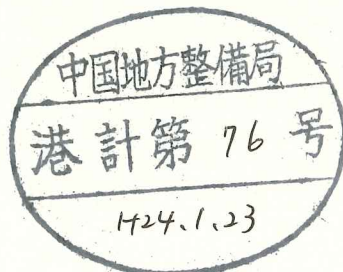 中国地方整備局
港計第 76 号
H24.1.23